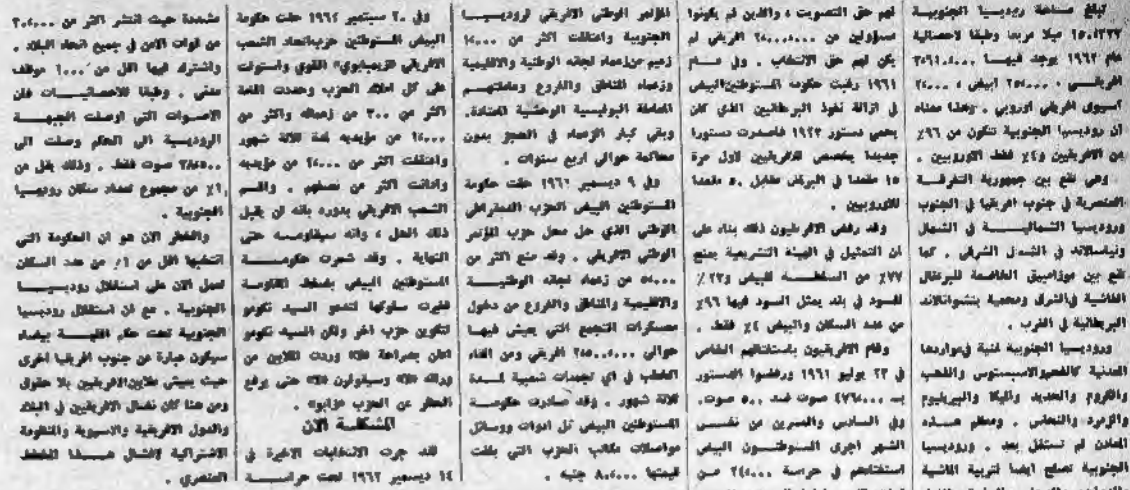 تبلغ مساحة روديسيا الجنوبية
١٥٠،٣٣٣ ميلا مربعا وطبقا لاحصائية
عام ١٩٦٢ يوجد فيها
افريقي
اسيوى افريقي اوروبي . وهذا معناه
ان روديسيا الجنوبية تتكون من ٩٦٪
من الافريقيين و٤٪ فقط الاوروبيين .
وهي تقع بين جمهورية التفرقة
العنصرية في جنوب افريقيا في الجنوب
وروديسيا الشمالية في الشمال
ونياسالاند في الشمال الشرقي . كما
تقع بين موزامبيق الخاضعة للبرتغال
الفاشية في الشرق ومحمية بتشوانالاند
البريطانية في الغرب .
وروديسيا الجنوبية غنية في مواردها
المعدنية كالفحم والاسبستوس والذهب
والكروم والحديد والميكا والبيريليوم
والزمرد والنحاس . ومعظم هذه
المعادن لم تستغل بعد . وروديسيا
الجنوبية تصلح ايضا لتربية الماشية
لهم حق التصويت ، والذين لم يكونوا
مسؤولين عن افريقي لم
يكن لهم حق الانتخاب . وفي عام
١٩٦١ رغبت حكومة المستوطنين البيض
في ازالة نفوذ البريطانيين الذي كان
يحمي دستور ١٩٢٣ فاصدرت دستورا
جديدا يخصص للافريقيين لاول مرة
١٥ مقعدا في البرلمان مقابل ٥٠ مقعدا
للاوروبيين .
وقد رفض الافريقيون ذلك بناء على
ان التمثيل في الهيئة التشريعية يمنح
٧٧٪ من السلطة للبيض و٢٣٪
للسود في بلد يمثل السود فيها ٩٦٪
من عدد السكان والبيض ٤٪ فقط .
وقام الافريقيون باستفتائهم الخاص
في ٢٣ يوليو ١٩٦١ ورفضوا الدستور
بـ صوت ضد ٥٠٠ صوت.
وفي السادس والعشرين من نفس
الشهر اجرى المستوطنون البيض
استفتاءهم في حراسة من
المؤتمر الوطني الافريقي لروديسيا
الجنوبية واعتقلت اكثر من
زعيم من زعماء لجانه الوطنية والاقليمية
وزعماء المناطق والفروع وعاملتهم
المعاملة البوليسية الوحشية المعتادة.
وبقي كبار الزعماء في الحجز بدون
محاكمة حوالى اربع سنوات .
وفي ٩ ديسمبر ١٩٦١ حلت حكومة
المستوطنين البيض الحزب الديمقراطي
الوطني الذي حل محل حزب المؤتمر
الوطني الافريقي . وقد منع اكثر من
من زعماء لجانه الوطنية
والاقليمية والمناطق والفروع من دخول
معسكرات التجمع التي يعيش فيها
حوالى افريقي ومن القاء
الخطب في اي تجمعات شعبية لمدة
ثلاثة شهور . وقد صادرت حكومة
المستوطنين البيض كل ادوات ووسائل
مواصلات مكاتب الحزب التي بلغت
قيمتها ٨٠،٠٠٠ جنيه .
وفي ٢٠ سبتمبر ١٩٦٢ حلت حكومة
البيض المستوطنين حزب اتحاد الشعب
الافريقي «زيمبابوي» القوي واستولت
على كل املاك الحزب وحددت اقامة
اكثر من ٣٠٠ من زعمائه واكثر من
من مؤيديه لمدة ثلاثة شهور
واعتقلت اكثر من من مؤيديه
وادانت اكثر من نصفهم . واقسم
الشعب الافريقي بدوره بانه لن يقبل
ذلك الحل ، وانه سيقاومه حتى
النهاية . وقد شعرت حكومة
المستوطنين البيض بضغط المقاومة
فغيرت سلوكها لتدعو السيد نكومو
لتكوين حزب آخر ولكن السيد نكومو
اعلن بصراحة «لا» وردت الملايين من
ورائه «لا» وسيقولون «لا» حتى يرفع
الحظر عن الحزب «زابو» .
المشكلة الآن
لقد جرت الانتخابات الاخيرة في
١٤ ديسمبر ١٩٦٢ تحت حراسة
مشددة حيث انتشر اكثر من
من قوات الامن في جميع انحاء البلاد .
واشترك فيها اقل من موظف
مدني . وطبقا للاحصائيات فان
الاصوات التي اوصلت الجبهة
الروديسية الى الحكم وصلت الى
صوت فقط . وذلك يقل من
١٪ من مجموع تعداد سكان روديسيا
الجنوبية .
والخطر الآن هو ان الحكومة التي
انتخبها اقل من ١٪ من عدد السكان
تعمل الآن على استقلال روديسيا
الجنوبية . مع ان استقلال روديسيا
الجنوبية تحت حكم اقلية بيضاء
سيكون عبارة عن جنوب افريقيا اخرى
حيث يعيش ملايين الافريقيين بلا حقوق
ومن هنا كان نضال الافريقيين في البلاد
والدول الافريقية والاسيوية والمنظومة
الاشتراكية لافشال هذا المخطط
العنصري .